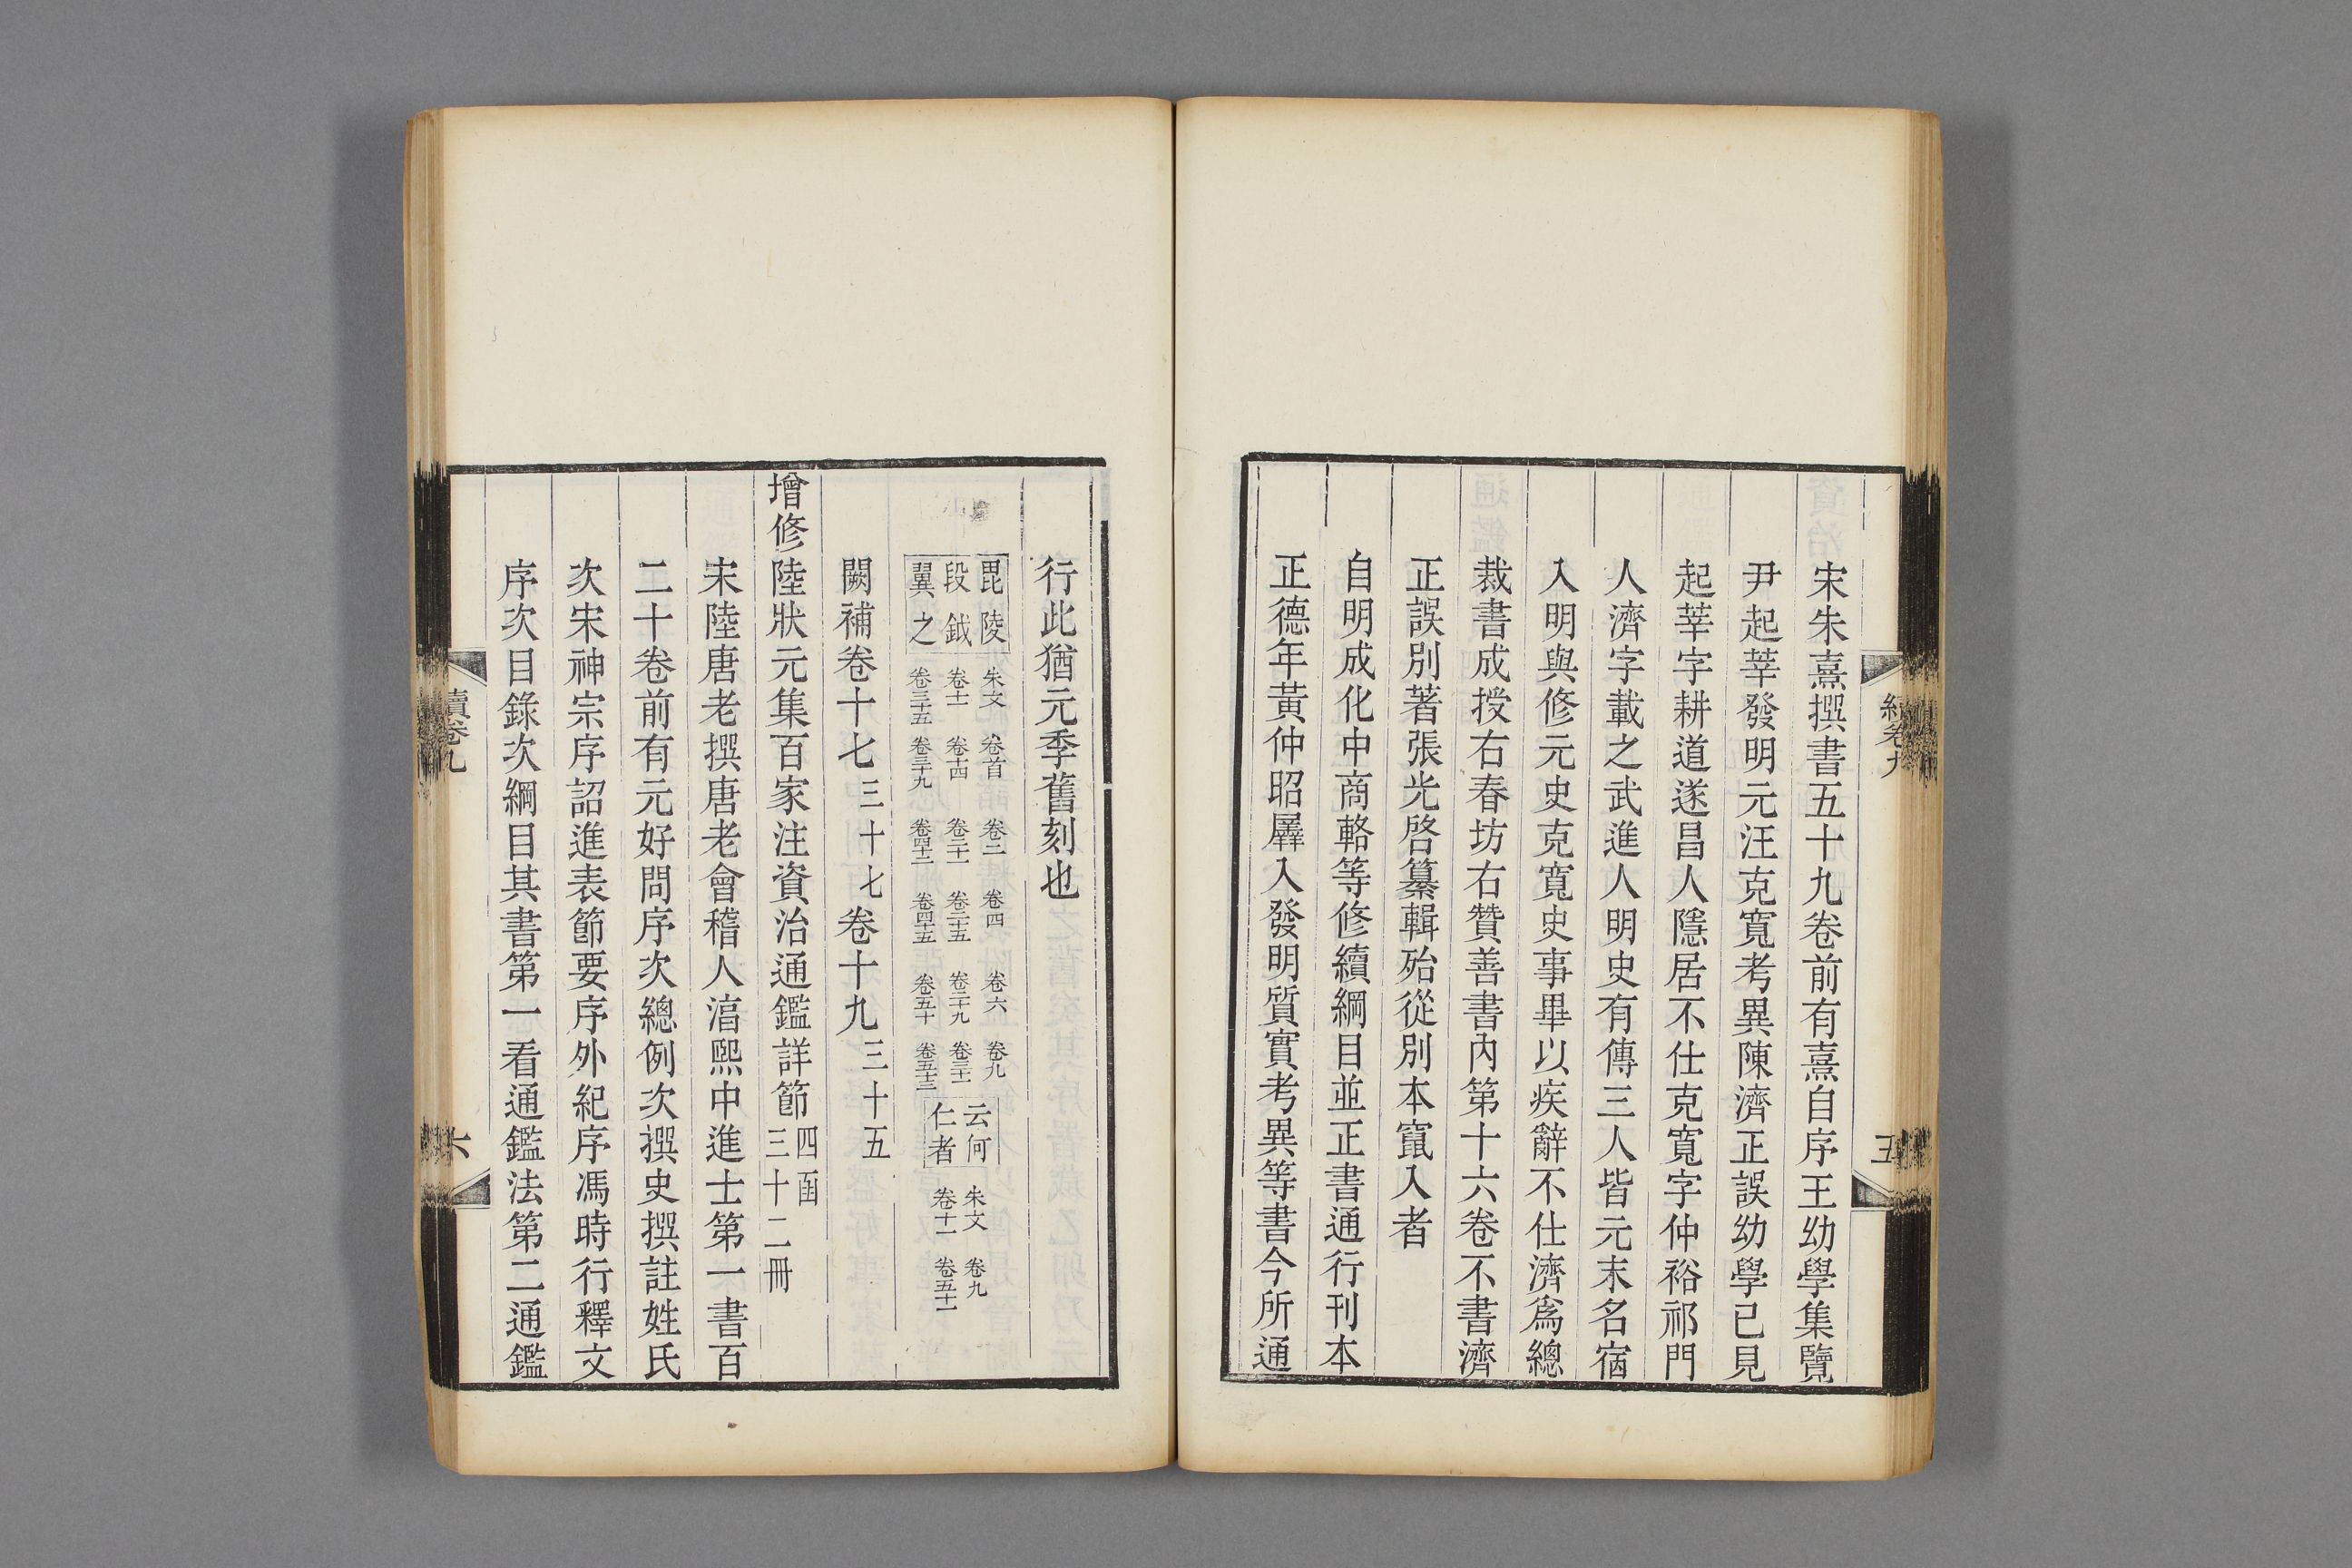 宋朱熹撰書五十九卷前有熹自序王幼學集覽
尹起莘發明元汪克寬考異陳濟正誤幼學已見
起莘字耕道遂昌人隱居不仕克寬字仲裕祁門
人濟字載之武進人明史有傳三人皆元末名宿
入明與修元史克寬史事畢以疾辭不仕濟爲總
裁書成授右春坊右贊善書內第十六卷不書濟
正誤別著張光啓纂輯殆從別本竄入者
自明成化中商輅等修續綱目並正書通行刊本
正德年黃仲昭羼入發明質實考異等書今所通
續卷九
五
行此猶元季舊刻也
毘陵
段鉞
翼之
朱文 卷首 卷二 卷四 卷六 卷九
卷十一 卷十四 卷二十一 卷二十五 卷二十九 卷三十二
卷三十五 卷三十九 卷四十二 卷四十五 卷五十 卷五十三
云何
仁者
朱文 卷九
卷十一 卷五十一
闕補卷十七三十七卷十九三十五
增修陸狀元集百家注資治通鑑詳節四函三十二冊
宋陸唐老撰唐老會稽人淳熙中進士第一書百
二十卷前有元好問序次總例次撰史撰註姓氏
次宋神宗序詔進表節要序外紀序馮時行釋文
序次目錄次綱目其書第一看通鑑法第二通鑑
續卷九
六